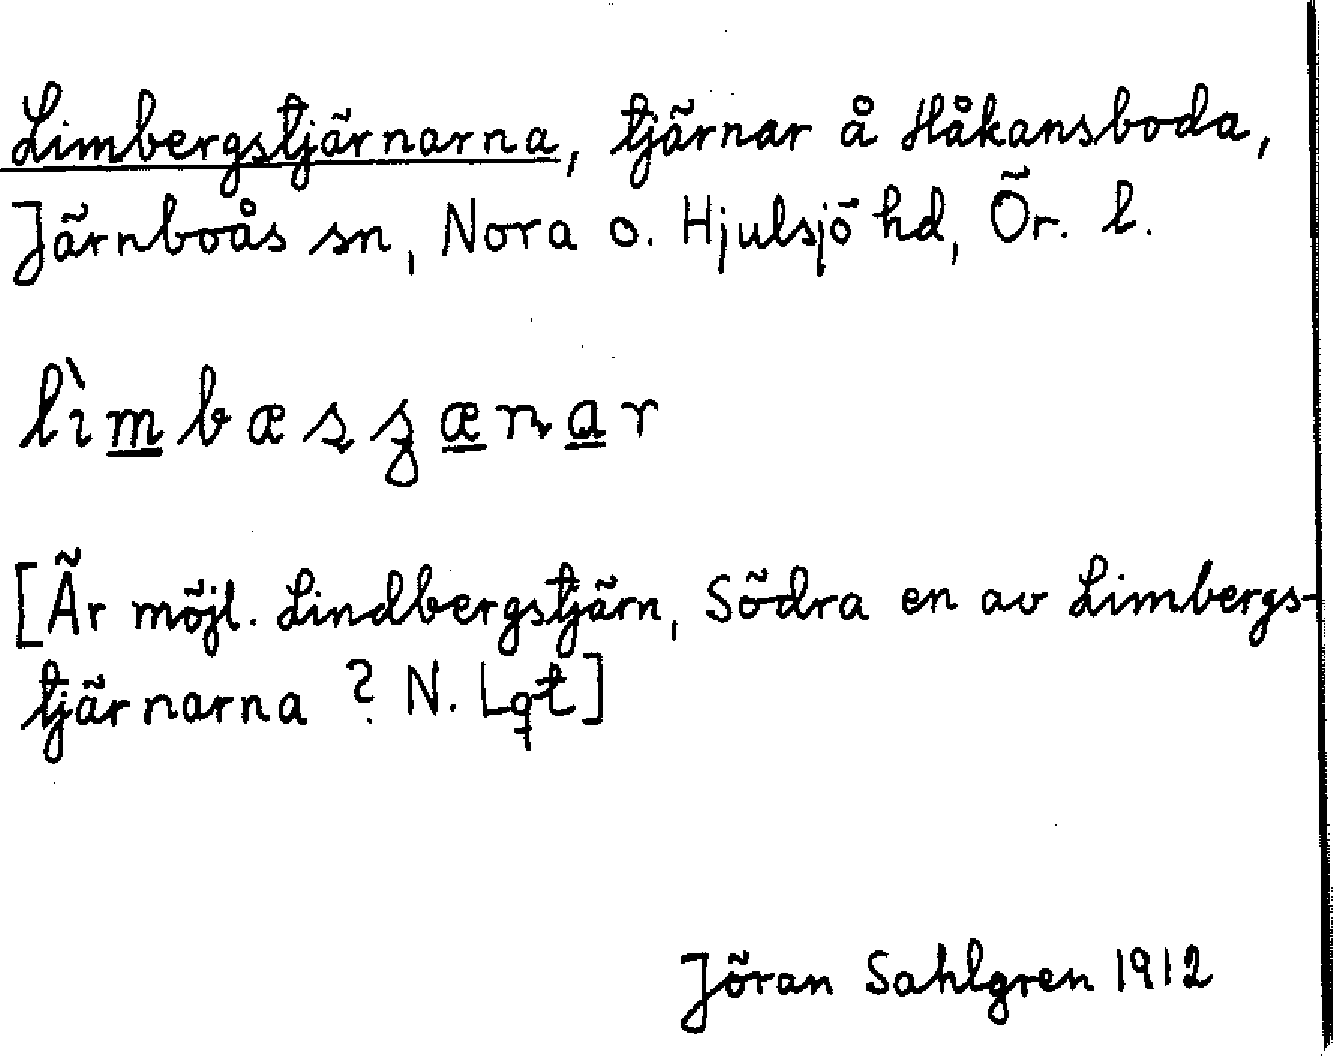 Limbergstjärnarna, tjärnar å Håkansboda,
Järnboås sn, Nora o. Hjulsjö hd, Ör. l.
[Är möjl. Lindbergstjärn, Södra en av Limbergs-
tjärnarna? N. Lqt]
Jöran Sahlgren 1912